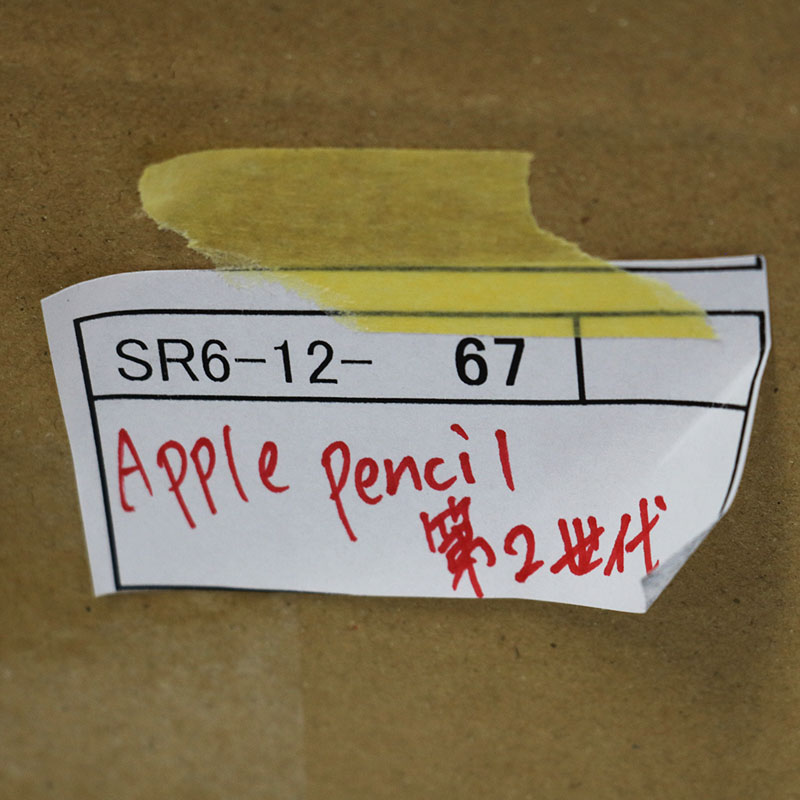 SR6-12- 67
Apple pencil
第2世代